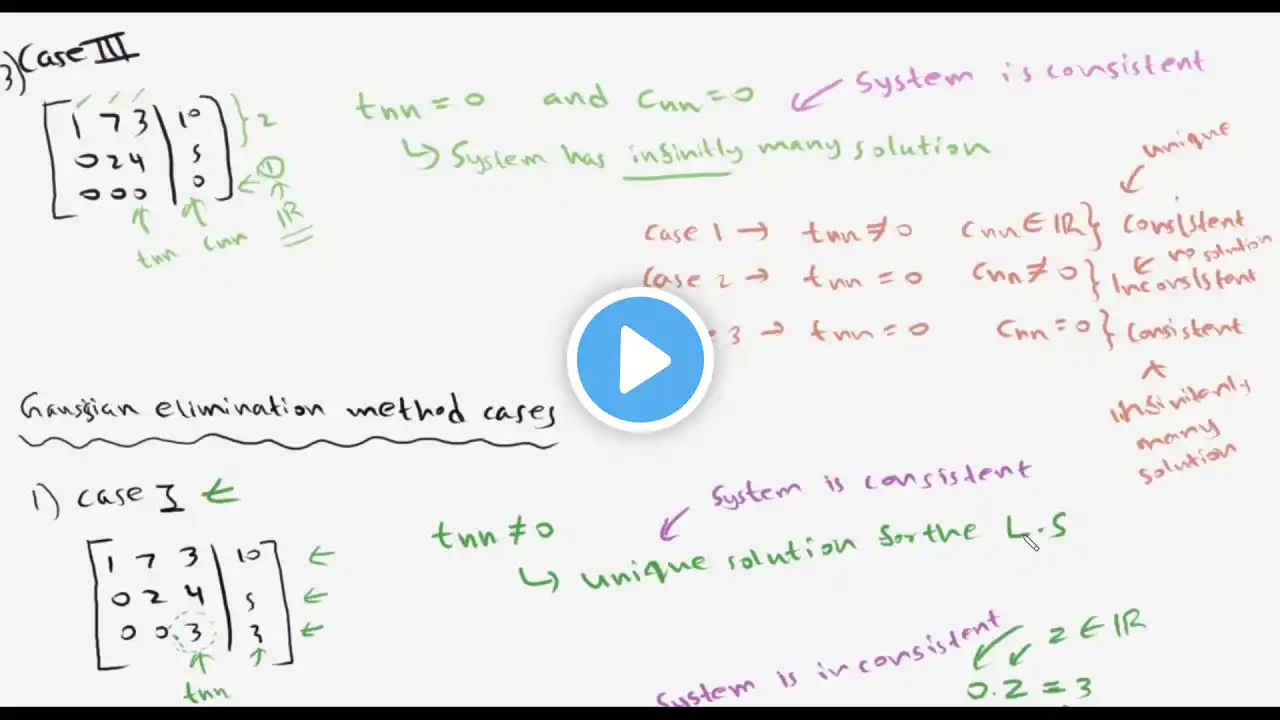 3) Case III
1 7 3 | 10 } 2
0 2 4 | 5
0 0 0 | 0 ← ①
tnn cnn IR
tnn = 0 and Cnn = 0
System is consistent
↳ System has infinitly many solution
unique
case 1 → tnn ≠ 0 Cnn ∈ IR } Consistent
no solution
case 2 → tnn = 0 Cnn ≠ 0 } Inconsistent
3 → tnn = 0 Cnn = 0 } Consistent
infinitenly
many
solution
Gaussian elimination method cases
1) case I ←
1 7 3 | 10 ←
0 2 4 | 5 ←
0 0 3 | 3 ←
tnn
System is consistent
tnn ≠ 0
↳ unique solution for the L.S
System is inconsistent
z ∈ IR
0.z = 3